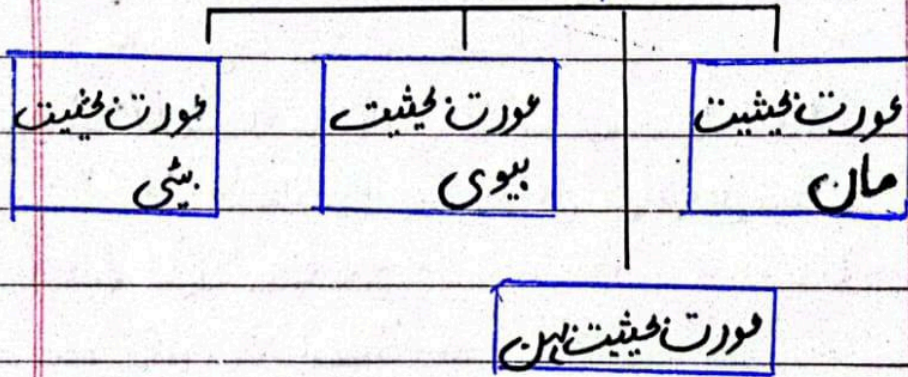 عورت بحیثیت
ماں
عورت بحیثیت
بیوی
عورت بحیثیت
بیٹی
عورت بحیثیت بہن